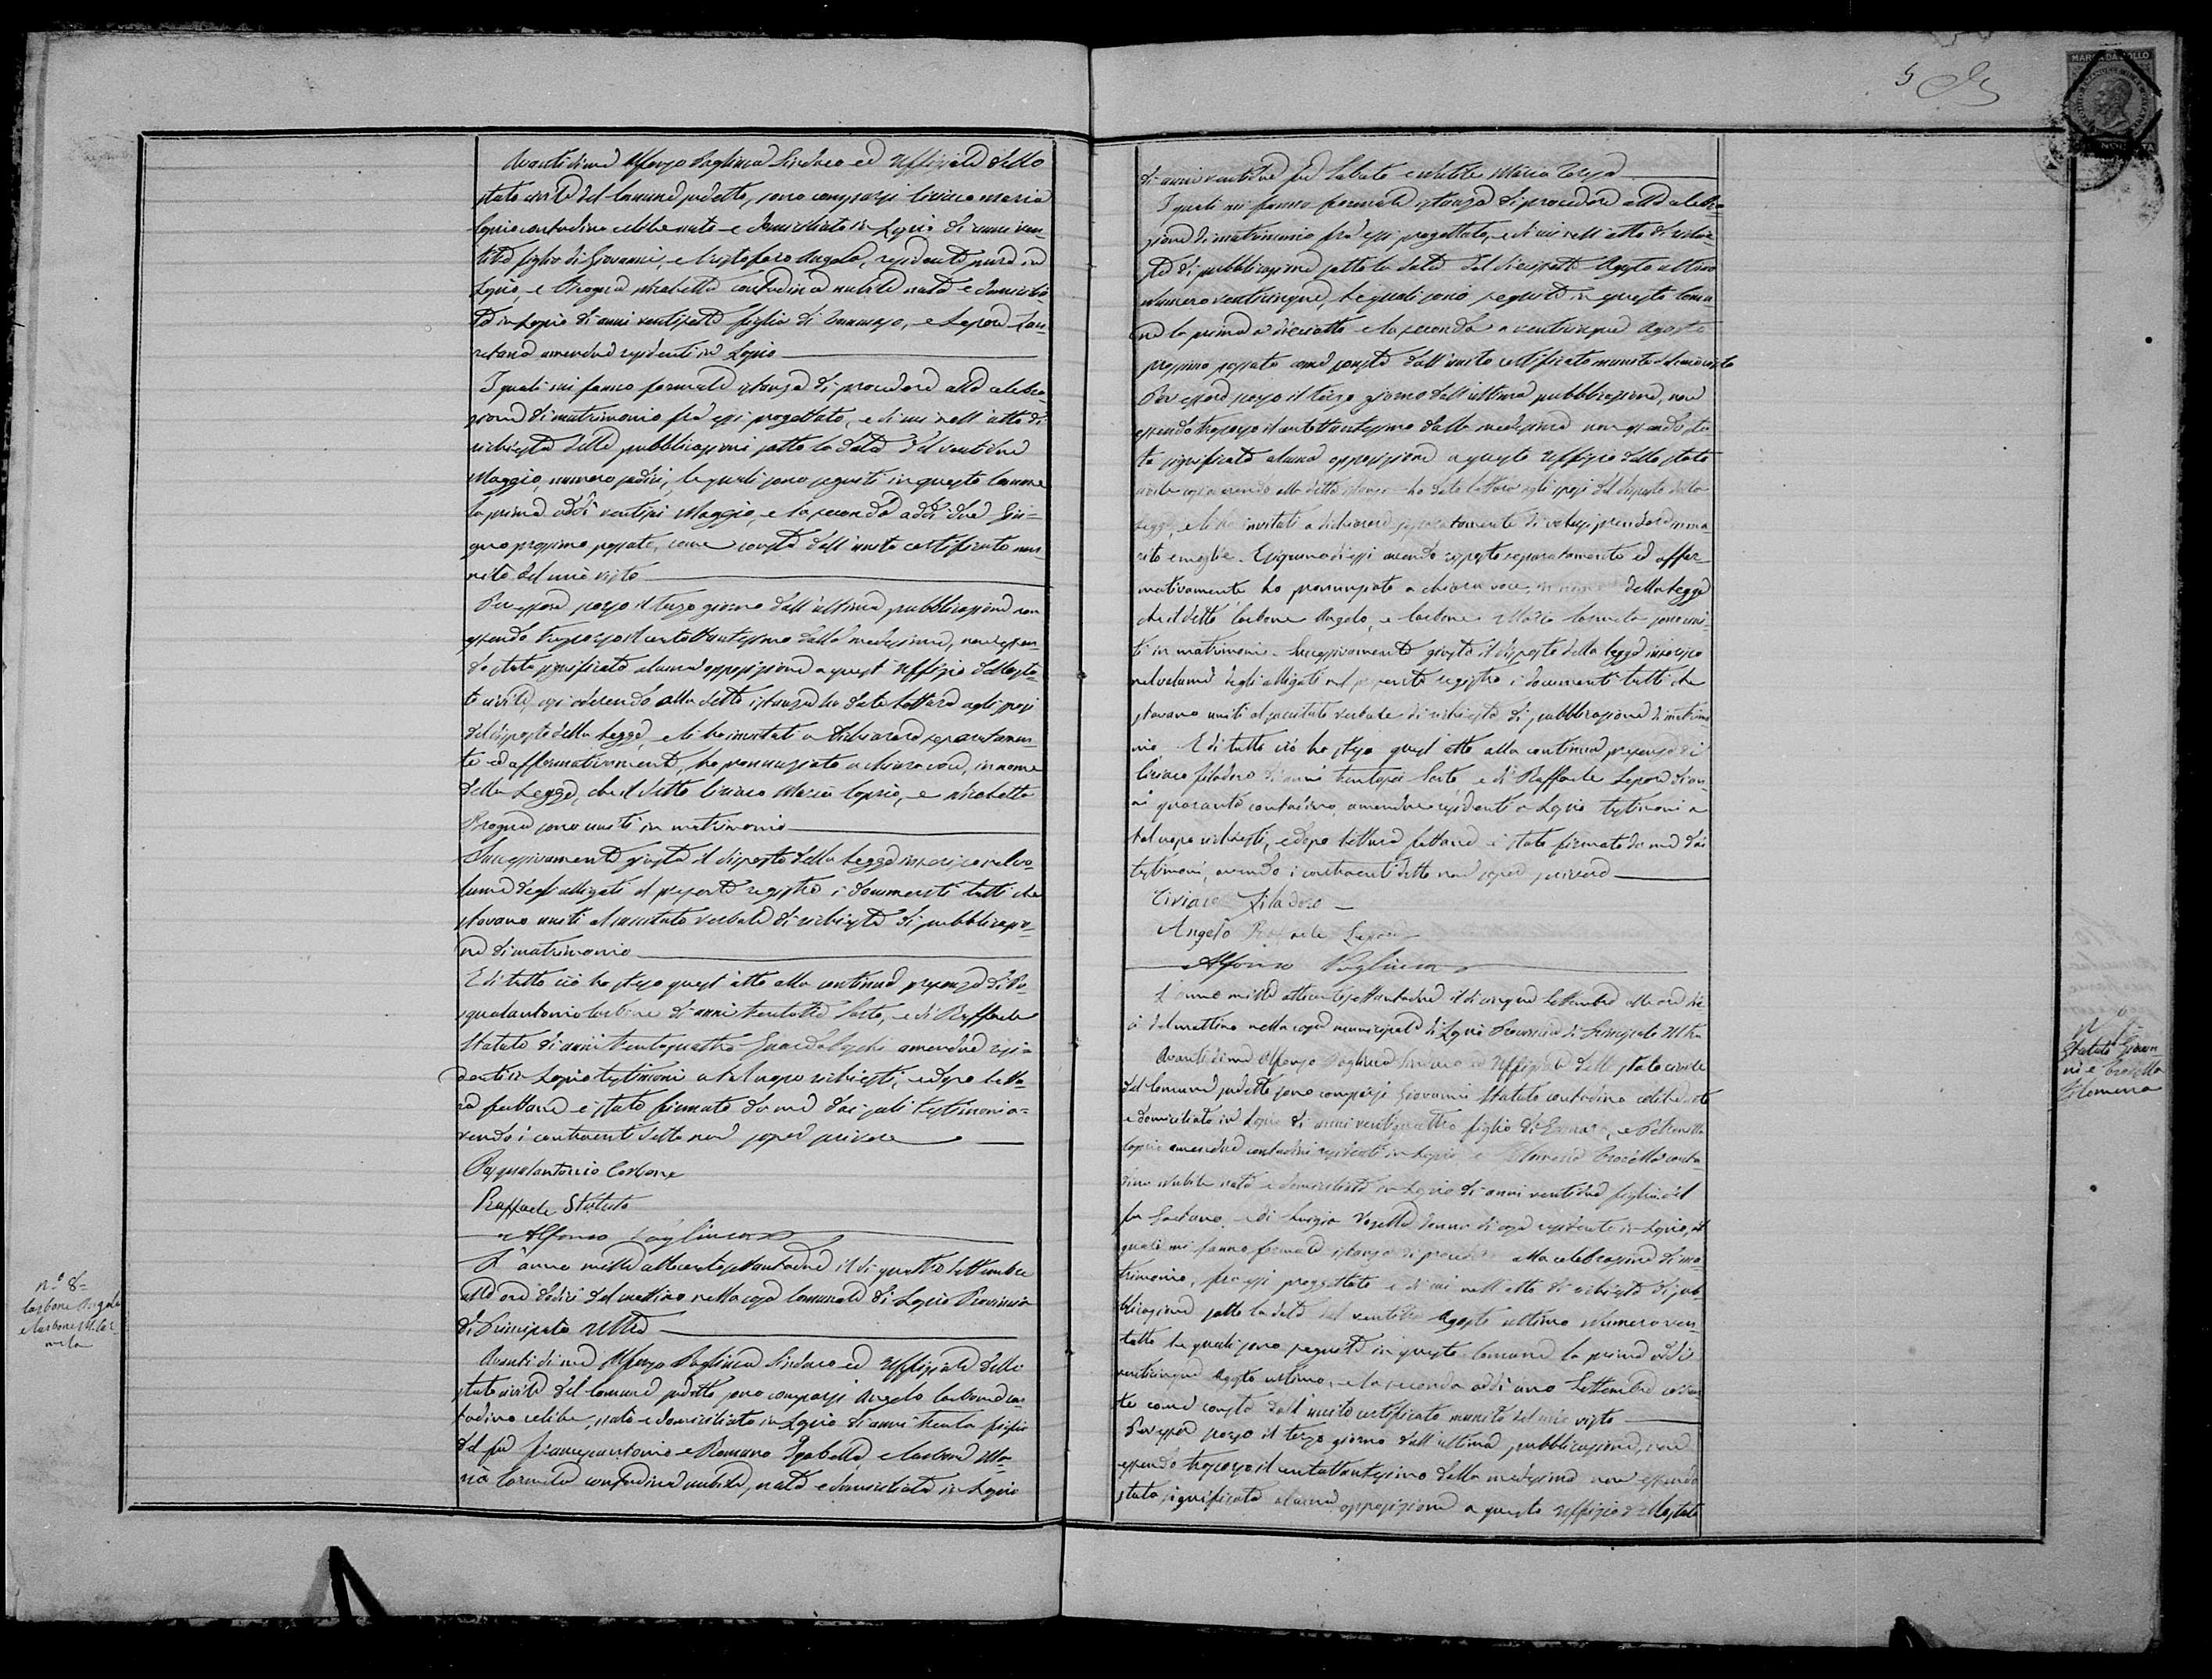 Avanti di me Alfonso Pagliuca Sindaco ed Uffiziale dello
stato civile del Comune sudetto, sono comparsi Ciriaco Maria
Coprio contadino celibe nato e domiciliato in Lapio di anni ven-
figlio di Giovanni, e Cristofaro Angela, residente pure in
Lapio, e Brogna Nicoletta contadina nubile nata e domicilia-
ta in Lapio di anni ventisette figlia di Tommaso, e Lepore
amendue residenti in Lapio
I quali mi fanno formale istanza di procedere alla celebra-
zione di matrimonio fra essi progettato, e di cui nell'atto di
richiesta delle pubblicazioni sotto la data del ventidue
Maggio, numero sedici, le quali sono seguite in questo Comune
la prima addì ventisei Maggio, e la seconda addì due Giu=
gno prossimo passato, come consta dall'unito certificato mu-
nito del mio visto
Per essere scorso il terzo giorno dall'ultima pubblicazione non
essendo trascorso il centottantesimo dalla medesima, non essen-
do stata significata alcuna opposizione a quest'Uffizio dello sta-
to civile, così aderendo alla detta istanza ho dato lettura agli sposi
del disposto della Legge, e li ho invitati a dichiarare separatamen-
te ed affermativamente, ho pronunziato a chiara voce, in nome
della Legge, che il detto Ciriaco Maria Coprio, e Nicoletta
Brogna sono uniti in matrimonio
Successivamente giusta il disposto della Legge inserisco nel vo-
lume degli allegati al presente registro i documenti tutti che
stavano uniti al succitato verbale di richiesta di pubblicazio-
ne di matrimonio
E di tutto ciò ho steso quest'atto alla continua presenza di Pa-
squalantonio Carbone di anni trentotto Sarto, e di Raffaele
Statuto di anni trentaquattro Guardaboschi amendue resi-
denti in Lapio testimoni a tal uopo richiesti, e dopo lettu-
ra fattane è stato firmato da me dai soli testimoni a=
vendo i contraenti detto non saper scrivere
Pasqualantonio Carbone
Raffaele Statuto
Alfonso Pagliuca
L'anno mille ottocentosettantadue il dì quattro Settembre
alle ore dodici del mattino nella casa Comunale di Lapio Provincia
di Principato Ultra
N.º 8=
Carbone Angelo
e Carbone M. Car-
mela
Avanti di me Alfonso Pagliuca Sindaco ed Uffiziale dello
stato civile del Comune sudetto sono comparsi Angelo Carbone con-
tadino celibe, nato e domiciliato in Lapio di anni trenta figlio
del fu Francescantonio e Romano Isabella, e Carbone Ma-
ria Carmela contadina nubile, nata e domiciliata in Lapio
5
MARCA DA BOLLO
di anni ventidue fu Sabato e Maria Teresa
I quali mi fanno formale istanza di procedere alla celebra-
zione di matrimonio fra essi progettato, e di cui nell'atto di richie-
sta di pubblicazione sotto la data del diciassette Agosto ultimo
Numero venticinque, le quali sono seguite in questo Comu-
ne la prima a diciotto e la seconda a venticinque Agosto
prossimo passato come consta dall'unito certificato munito del mio visto
Per essere scorso il terzo giorno dall'ultima pubblicazione, non
essendo trascorso il centottantesimo dalla medesima non essendo sta-
ta significata alcuna opposizione a questo Uffizio dello stato
civile così aderendo alla detta istanza ho dato lettura agli sposi del disposto della
Legge, e li ho invitati a dichiarare separatamente di volersi prendere in ma-
rito e moglie. E ciascuno di essi avendo risposto separatamente ed affer-
mativamente ho pronunziato a chiara voce, in nome della Legge
che il detto Carbone Angelo, e Carbone Maria Carmela sono uni-
ti in matrimonio. Successivamente giusta il disposto della legge inserisco
nel volume degli allegati nel presente registro i documenti tutti che
stavano uniti al succitato verbale di richiesta di pubblicazione di matrimo-
nio. E di tutto ciò ho steso quest'atto alla continua presenza di
Ciriaco Filadoro di anni trentasei Sarto e di Raffaele Lepore di an-
ni quaranta contadino, amendue residenti a Lapio testimoni a
tal uopo richiesti, e dopo lettura fattane è stato firmato da me dai
testimoni, avendo i contraenti detto non saper scrivere
Ciriaco Filadoro
Angelo Raffaele Lepore
Alfonso Pagliuca
L'anno mille ottocentosettantadue il dì cinque Settembre alle ore die-
ci del mattino nella casa municipale di Lapio Provincia di Principato Ultra
N. 9
Statuto Giovan-
ni e Trosella
Filomena
Avanti di me Alfonso Pagliuca Sindaco ed Uffiziale dello stato civile
del Comune sudetto sono comparsi Giovanni Statuto contadino celibe nato
e domiciliato in Lapio di anni ventiquattro figlio di e Petronilla
Coprio amendue contadini residenti in Lapio e Filomena conta-
dina nubile nata e domiciliata in Lapio di anni ventidue figlia del
fu Gaetano, e di donna di casa residente in Lapio, i
quali mi fanno formale istanza di procedere alla celebrazione di ma-
trimonio, fra essi progettato e di cui nell'atto di richiesta di pub-
blicazione sotto la data del Agosto ultimo Numero ven-
totto le quali sono seguite in questo Comune la prima addì
venticinque Agosto ultimo, e la seconda addì uno Settembre corren-
te come consta dall'unito certificato munito del mio visto
Per esser scorso il terzo giorno dall'ultima pubblicazione, non
essendo trascorso il centottantesimo dalla medesima non essendo
stata significata alcuna opposizione a questo Uffizio dello stato